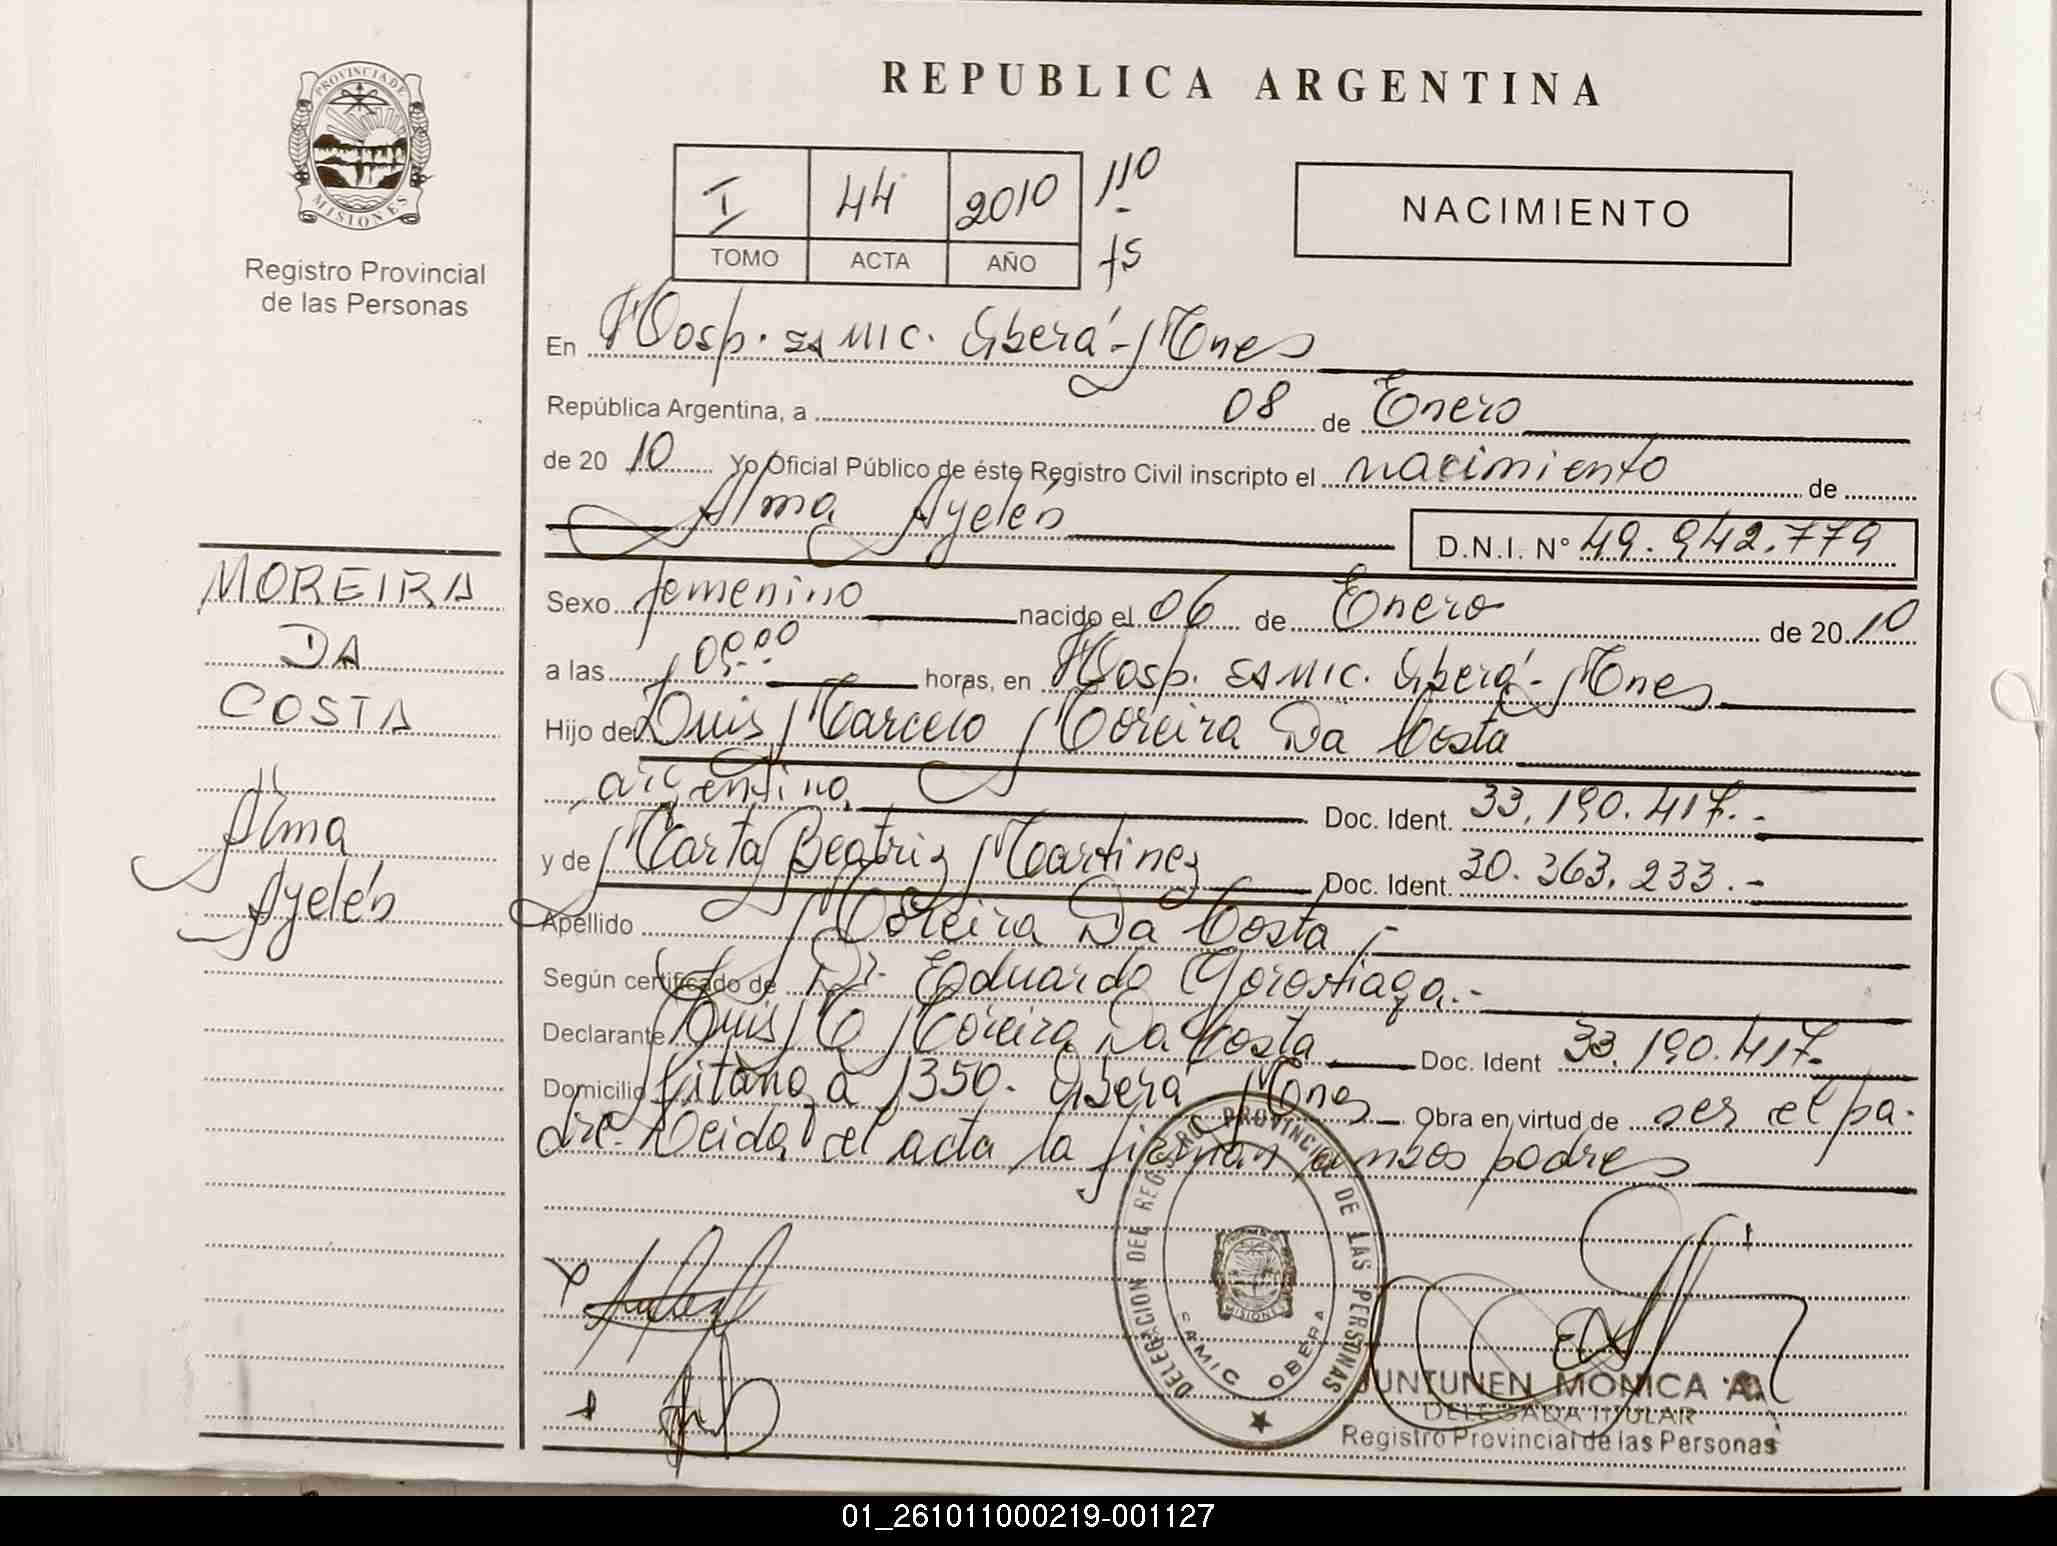 REPUBLICA ARGENTINA
PROVINCIA DE
MISIONES
Registro Provincial
de las Personas
I 44 2010 110
TOMO ACTA AÑO fs
NACIMIENTO
En Hosp. SAMIC. Oberá - Mnes
República Argentina, a 08 de Enero
de 20 10 Yo Oficial Público de éste Registro Civil inscripto el nacimiento de
Alma Ayelén
D.N.I. N° 49.942.779
MOREIRA
DA
COSTA
Alma
Ayelén
Sexo femenino nacido el 06 de Enero de 20 10
a las 09:00 horas, en Hosp. SAMIC. Oberá - Mnes
Hijo de Luis Marcelo Moreira Da Costa
argentino Doc. Ident. 33.190.417.-
y de Marta Beatriz Martinez Doc. Ident. 30.363.233.-
Apellido Moreira Da Costa.-
Según certificado de Dr. Eduardo Gorostiaga.-
Declarante Luis M Moreira Da Costa Doc. Ident 33.190.417.-
Domicilio 1350. Oberá Mnes Obra en virtud de ser el pa-
dre. Leida el acta la firman ambos padres
DELEGACION DEL REGISTRO PROVINCIAL DE LAS PERSONAS
MISIONES
SAMIC OBERA
JUNTUNEN MONICA A.
DELEGADA TITULAR
Registro Provincial de las Personas
01_261011000219-001127